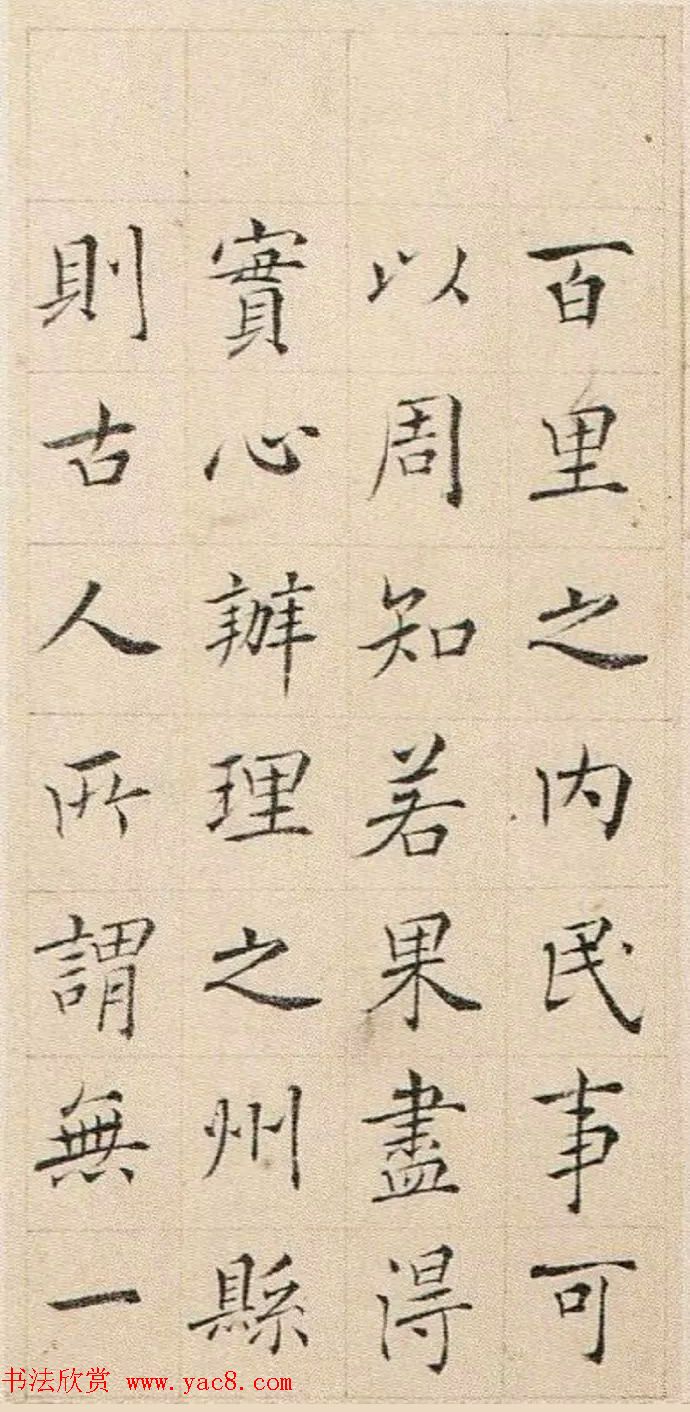 百里之內民事可
以周知若果盡得
實心辦理之州縣
則古人所謂無一
书法欣赏 www.yac8.com